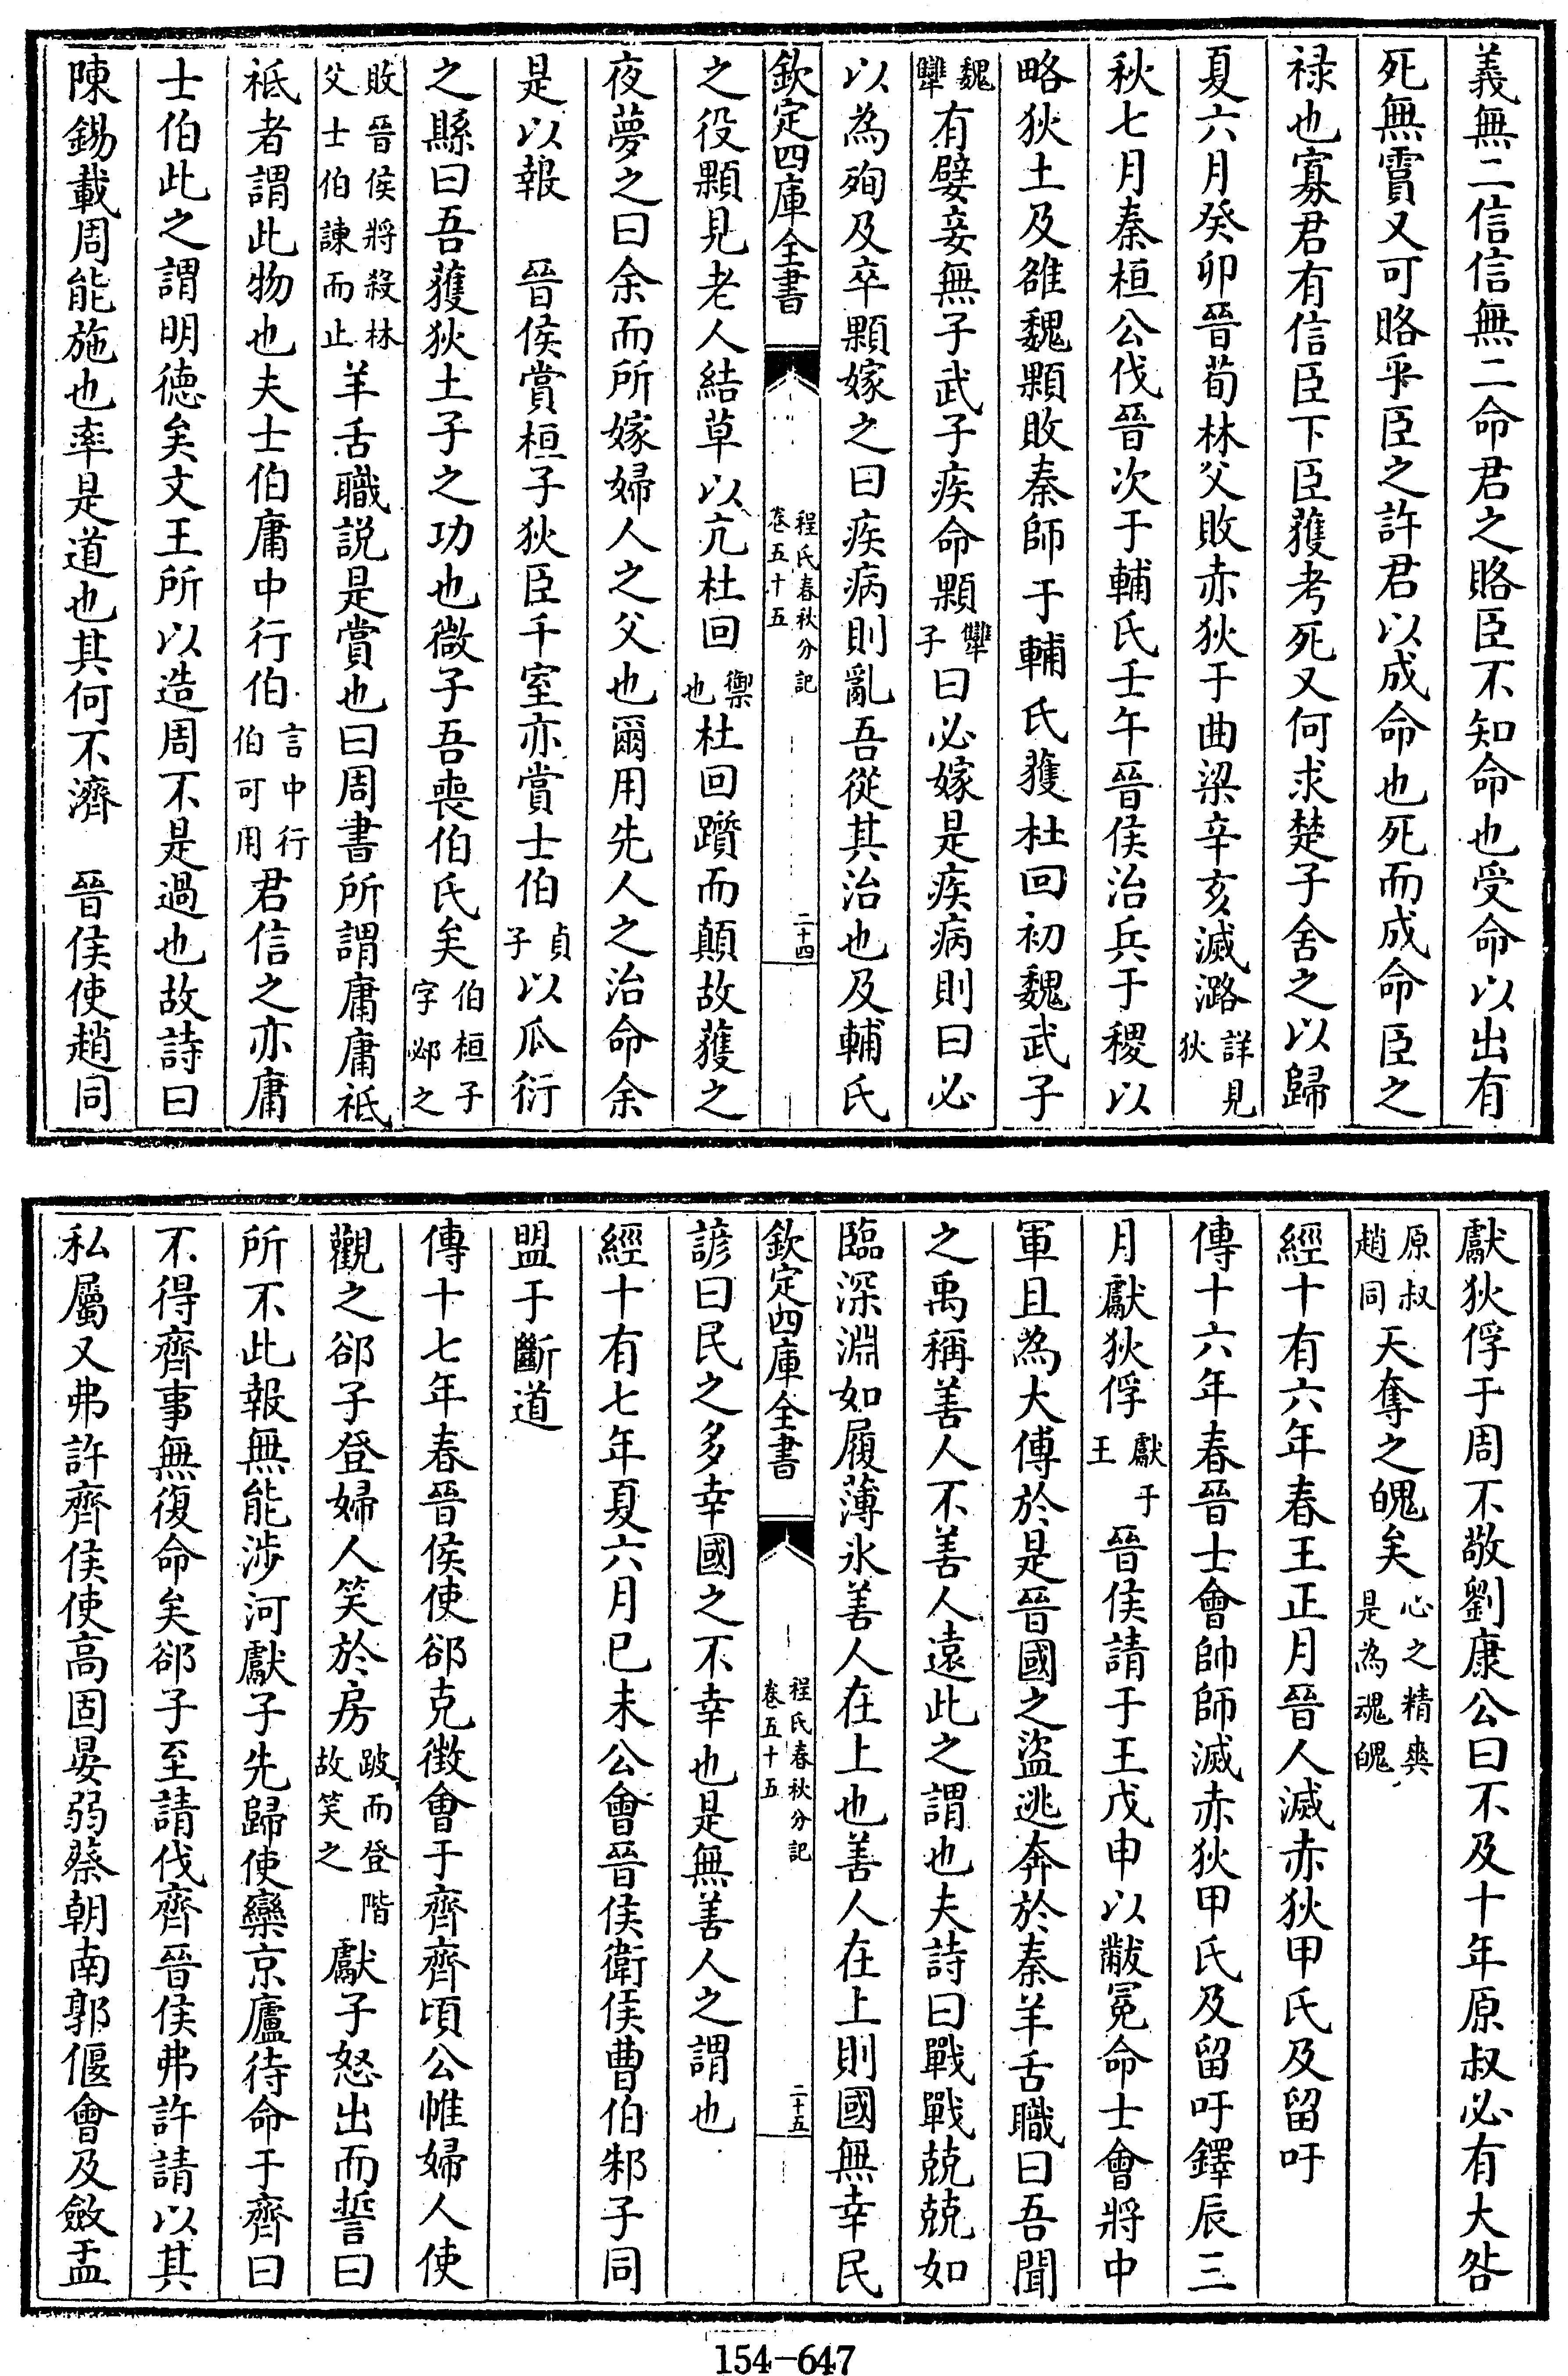 義無二信信無二命君之賂臣不知命也受命以出有
死無霣又可賂乎臣之許君以成命也死而成命臣之
禄也寡君有信臣下臣獲考死又何求楚子舍之以歸
夏六月癸卯晉荀林父敗赤狄于曲梁辛亥滅潞詳見狄
秋七月秦桓公伐晉次于輔氏壬午晉侯治兵于稷以
略狄土及雒魏顆敗秦師于輔氏獲杜回初魏武子
魏犫有嬖妾無子武子疾命顆犫子曰必嫁是疾病則曰必
以為殉及卒顆嫁之曰疾病則亂吾從其治也及輔氏
欽定四庫全書
程氏春秋分記
卷五十五
二十四
之役顆見老人結草以亢杜回禦也杜回躓而顛故獲之
夜夢之曰余而所嫁婦人之父也爾用先人之治命余
是以報 晉侯賞桓子狄臣千室亦賞士伯貞子以瓜衍
之縣曰吾獲狄土子之功也微子吾喪伯氏矣伯桓子字邲之
敗晉侯將殺林父士伯諫而止羊舌職説是賞也曰周書所謂庸庸祗
祗者謂此物也夫士伯庸中行伯言中行伯可用君信之亦庸
士伯此之謂明徳矣文王所以造周不是過也故詩曰
陳錫載周能施也率是道也其何不濟 晉侯使趙同
獻狄俘于周不敬劉康公曰不及十年原叔必有大咎
原叔趙同天奪之魄矣心之精爽是為魂魄
經十有六年春王正月晉人滅赤狄甲氏及留吁
傳十六年春晉士會帥師滅赤狄甲氏及留吁鐸辰三
月獻狄俘獻于王晉侯請于王戊申以黻冕命士會將中
軍且為大傅於是晉國之盜逃奔於秦羊舌職曰吾聞
之禹稱善人不善人遠此之謂也夫詩曰戰戰兢兢如
臨深淵如履薄氷善人在上也善人在上則國無幸民
欽定四庫全書
程氏春秋分記
卷五十五
二十五
諺曰民之多幸國之不幸也是無善人之謂也
經十有七年夏六月已未公會晉侯衛侯曹伯邾子同
盟于斷道
傳十七年春晉侯使郤克徴會于齊齊頃公帷婦人使
觀之郤子登婦人笑於房跛而登階故笑之獻子怒出而誓曰
所不此報無能涉河獻子先歸使欒京廬待命于齊曰
不得齊事無復命矣郤子至請伐齊晉侯弗許請以其
私屬又弗許齊侯使高固晏弱蔡朝南郭偃會及斂盂
154-647